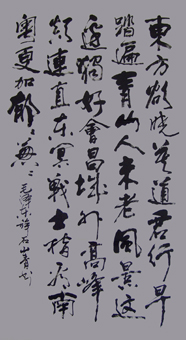 東方欲曉莫道君行早
踏遍青山人未老風景這
邊獨好會昌城外高峰
顛連直东溟戰士指看南
粵更加郁〻葱〻
毛澤東詩 石山青书